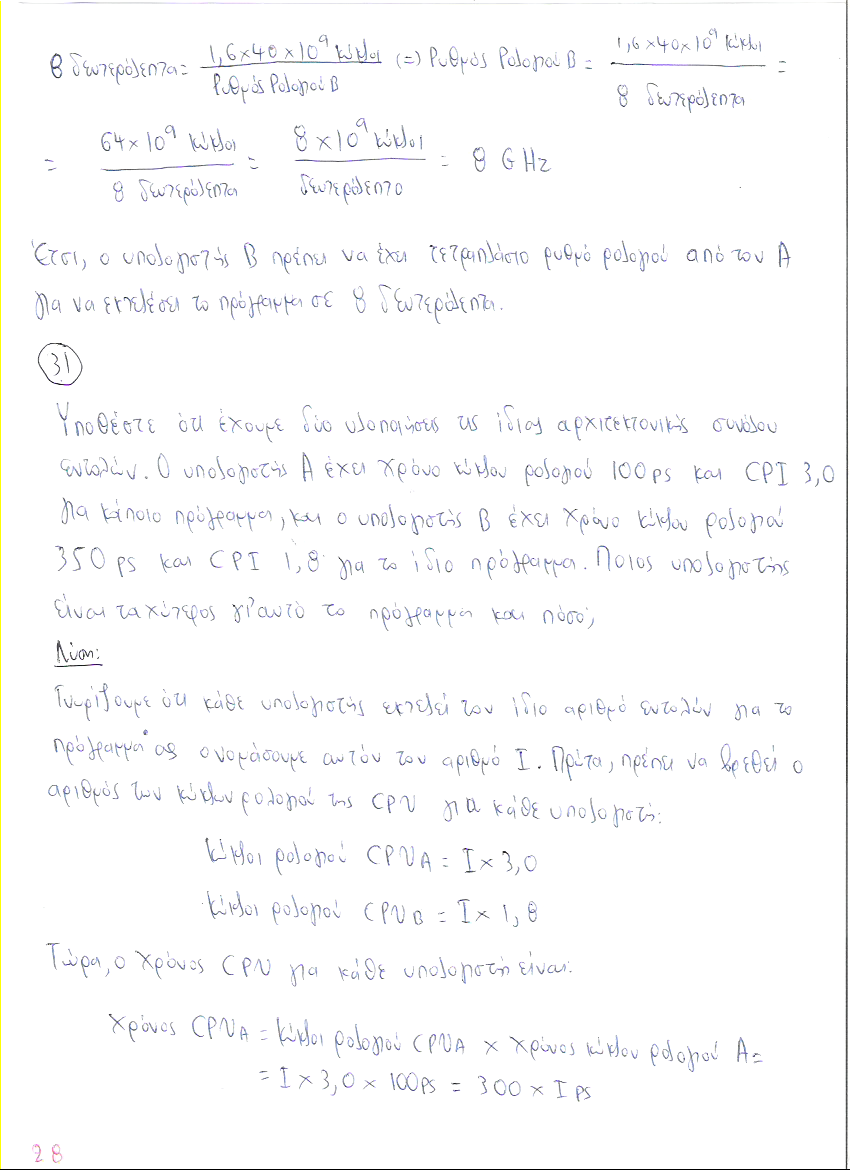 8 δευτερόλεπτα = 1,6×40×10⁹ κύκλοι / Ρυθμός Ρολογιού Β (=) Ρυθμός Ρολογιού Β = 1,6×40×10⁹ κύκλοι / 8 δευτερόλεπτα =
= 64×10⁹ κύκλοι / 8 δευτερόλεπτα = 8×10⁹ κύκλοι / δευτερόλεπτο = 8 GHz
Έτσι, ο υπολογιστής Β πρέπει να έχει τετραπλάσιο ρυθμό ρολογιού από τον Α
για να εκτελέσει το πρόγραμμα σε 8 δευτερόλεπτα.
31
Υποθέστε ότι έχουμε δύο υλοποιήσεις της ίδιας αρχιτεκτονικής συνόλου
εντολών. Ο υπολογιστής Α έχει χρόνο κύκλου ρολογιού 100ps και CPI 3,0
για κάποιο πρόγραμμα, και ο υπολογιστής Β έχει χρόνο κύκλου ρολογιού
350 ps και CPI 1,8 για το ίδιο πρόγραμμα. Ποιος υπολογιστής
είναι ταχύτερος γι'αυτό το πρόγραμμα και πόσο;
Λύση:
Γνωρίζουμε ότι κάθε υπολογιστής εκτελεί τον ίδιο αριθμό εντολών για το
πρόγραμμα· ας ονομάσουμε αυτόν τον αριθμό I. Πρώτα, πρέπει να βρεθεί ο
αριθμός των κύκλων ρολογιού της CPU για κάθε υπολογιστή:
Κύκλοι ρολογιού CPU_A = I × 3,0
Κύκλοι ρολογιού CPU_B = I × 1,8
Τώρα, ο χρόνος CPU για κάθε υπολογιστή είναι:
Χρόνος CPU_A = Κύκλοι ρολογιού CPU_A × Χρόνος κύκλου ρολογιού Α =
= I × 3,0 × 100ps = 300 × I ps
28